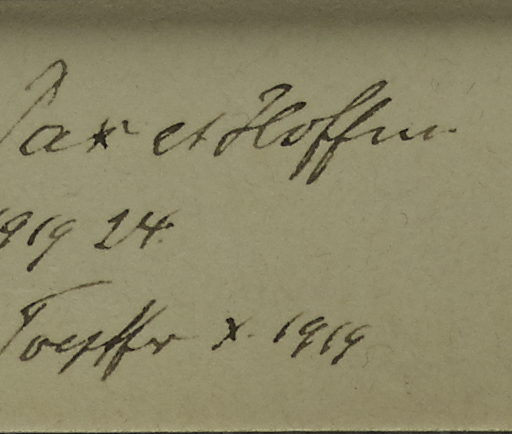 Pax et Hoffm.
1919 24.
Toepffer X. 1919